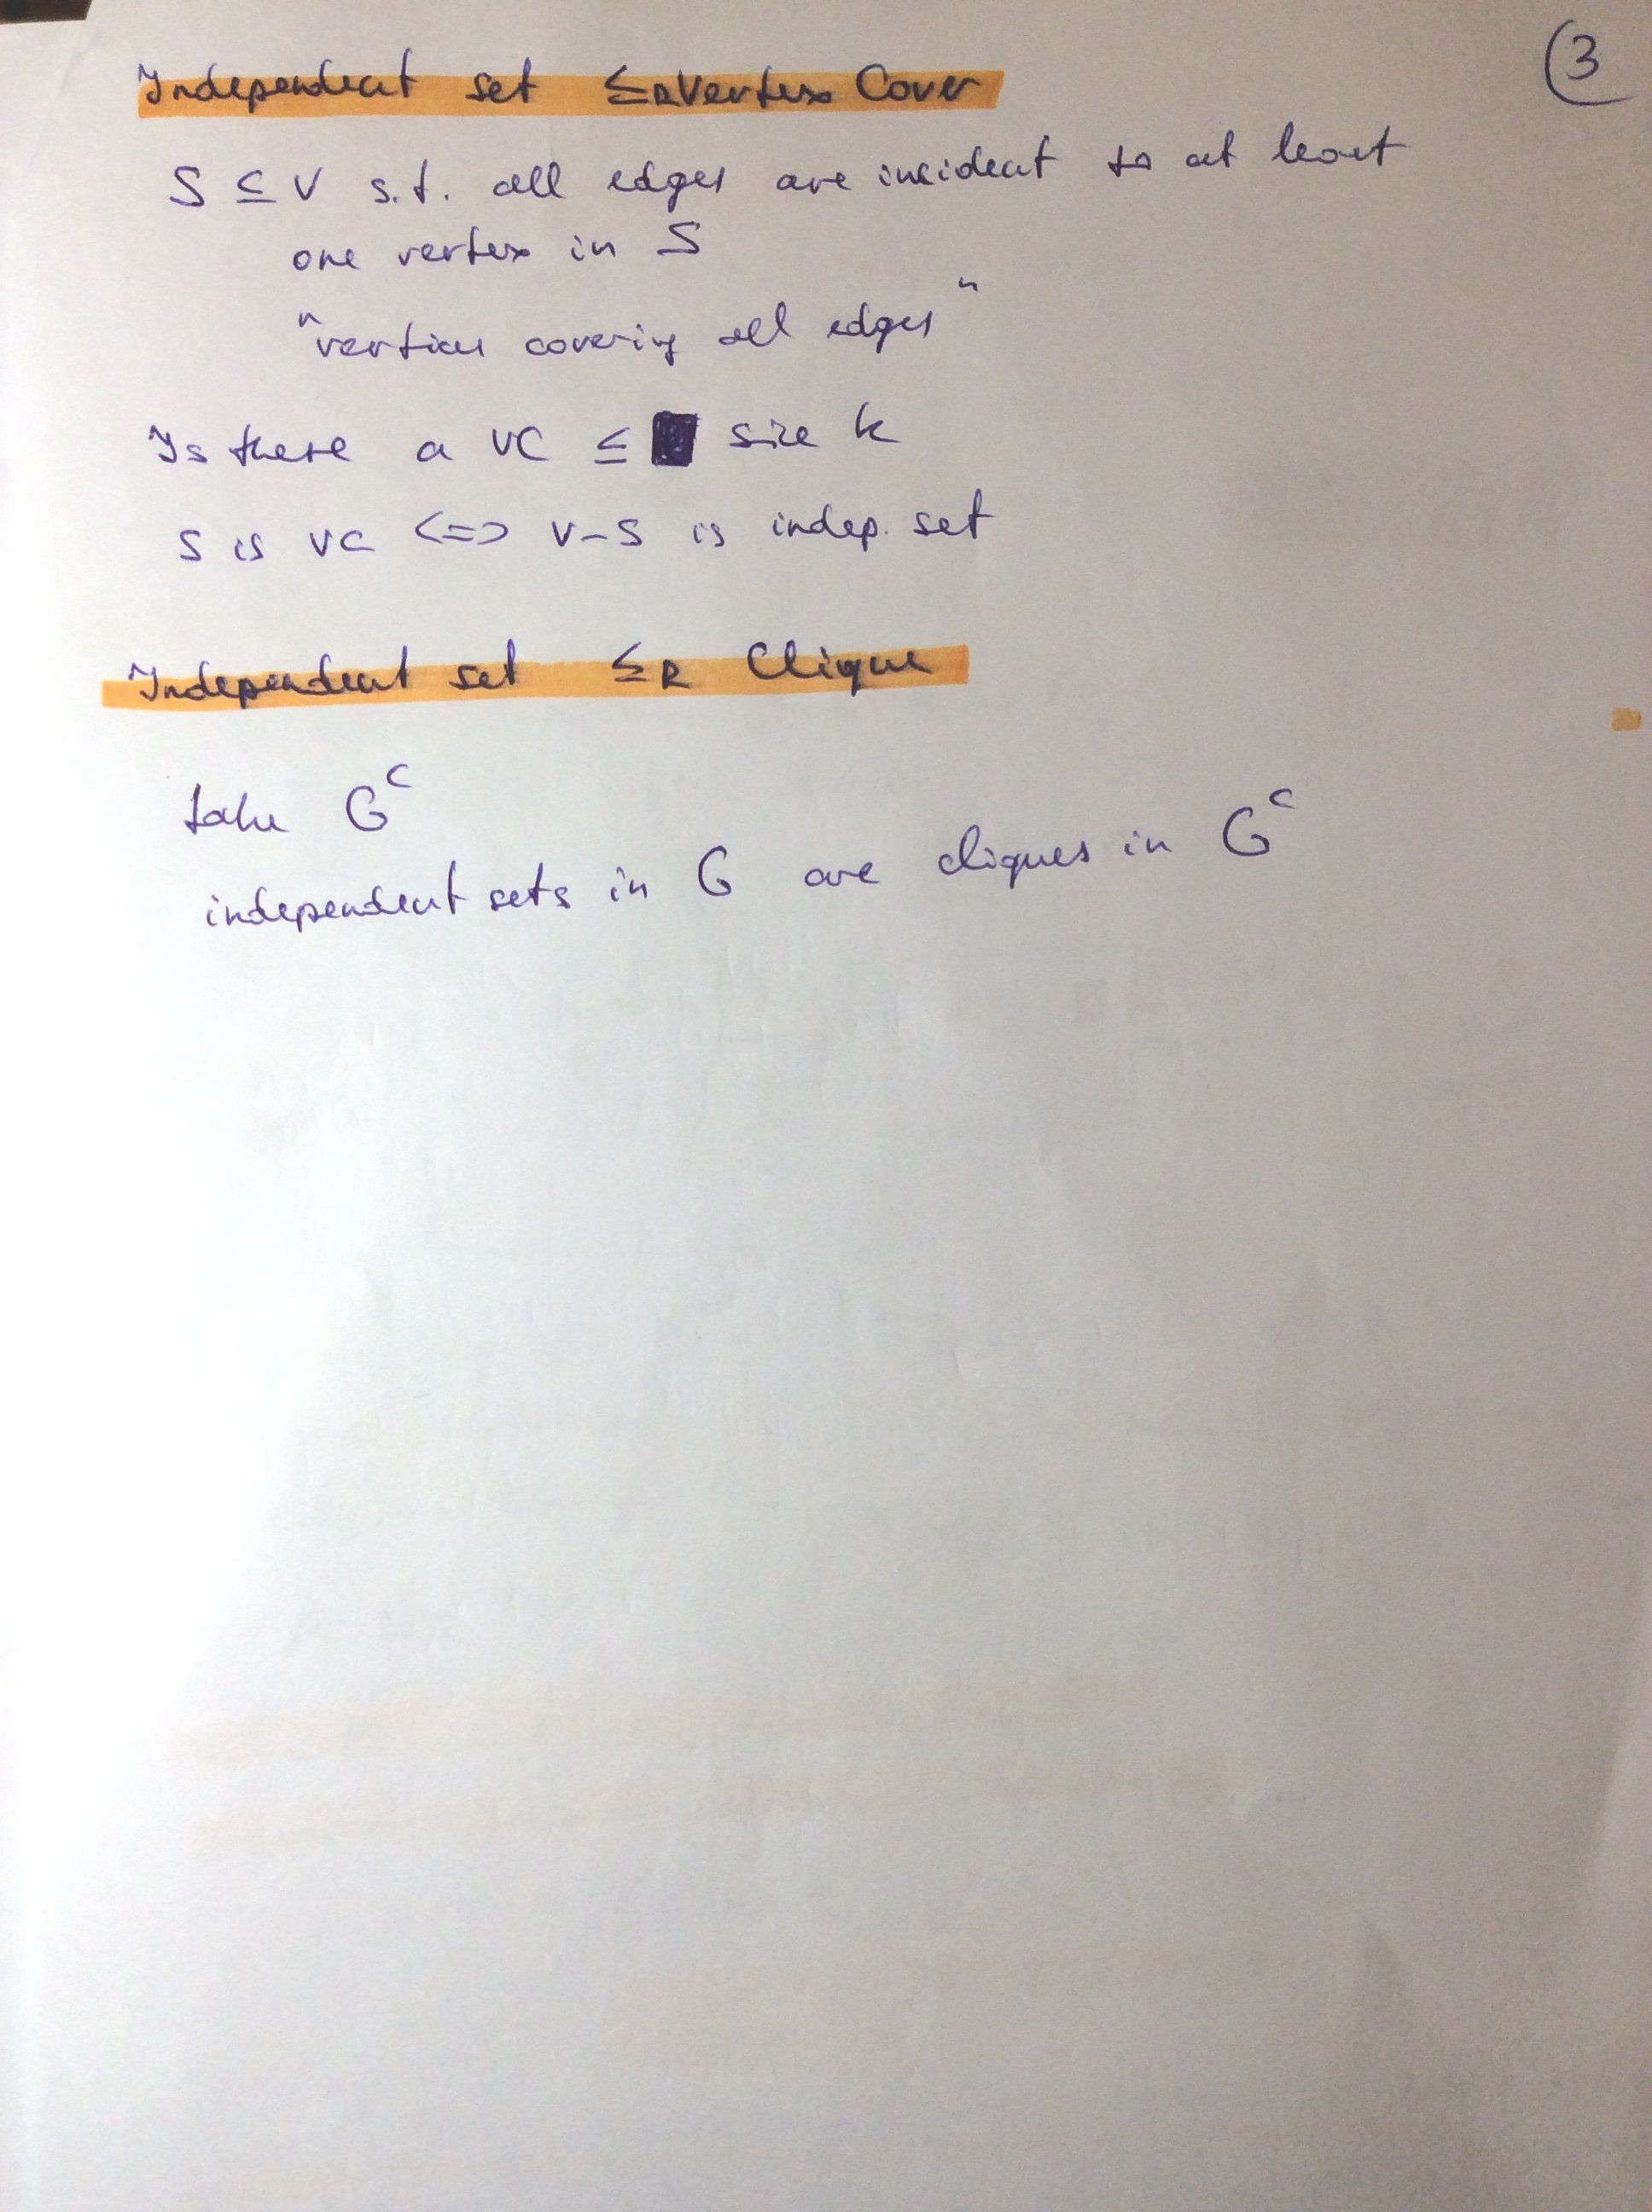 3
Independent set ≤R Vertex Cover
S ⊆ V s.t. all edges are incident to at least
one vertex in S
"vertices covering all edges"
Is there a VC ≤ size k
S is VC <=> V-S is indep. set
Independent set ≤R Clique
take G^c
independent sets in G are cliques in G^c